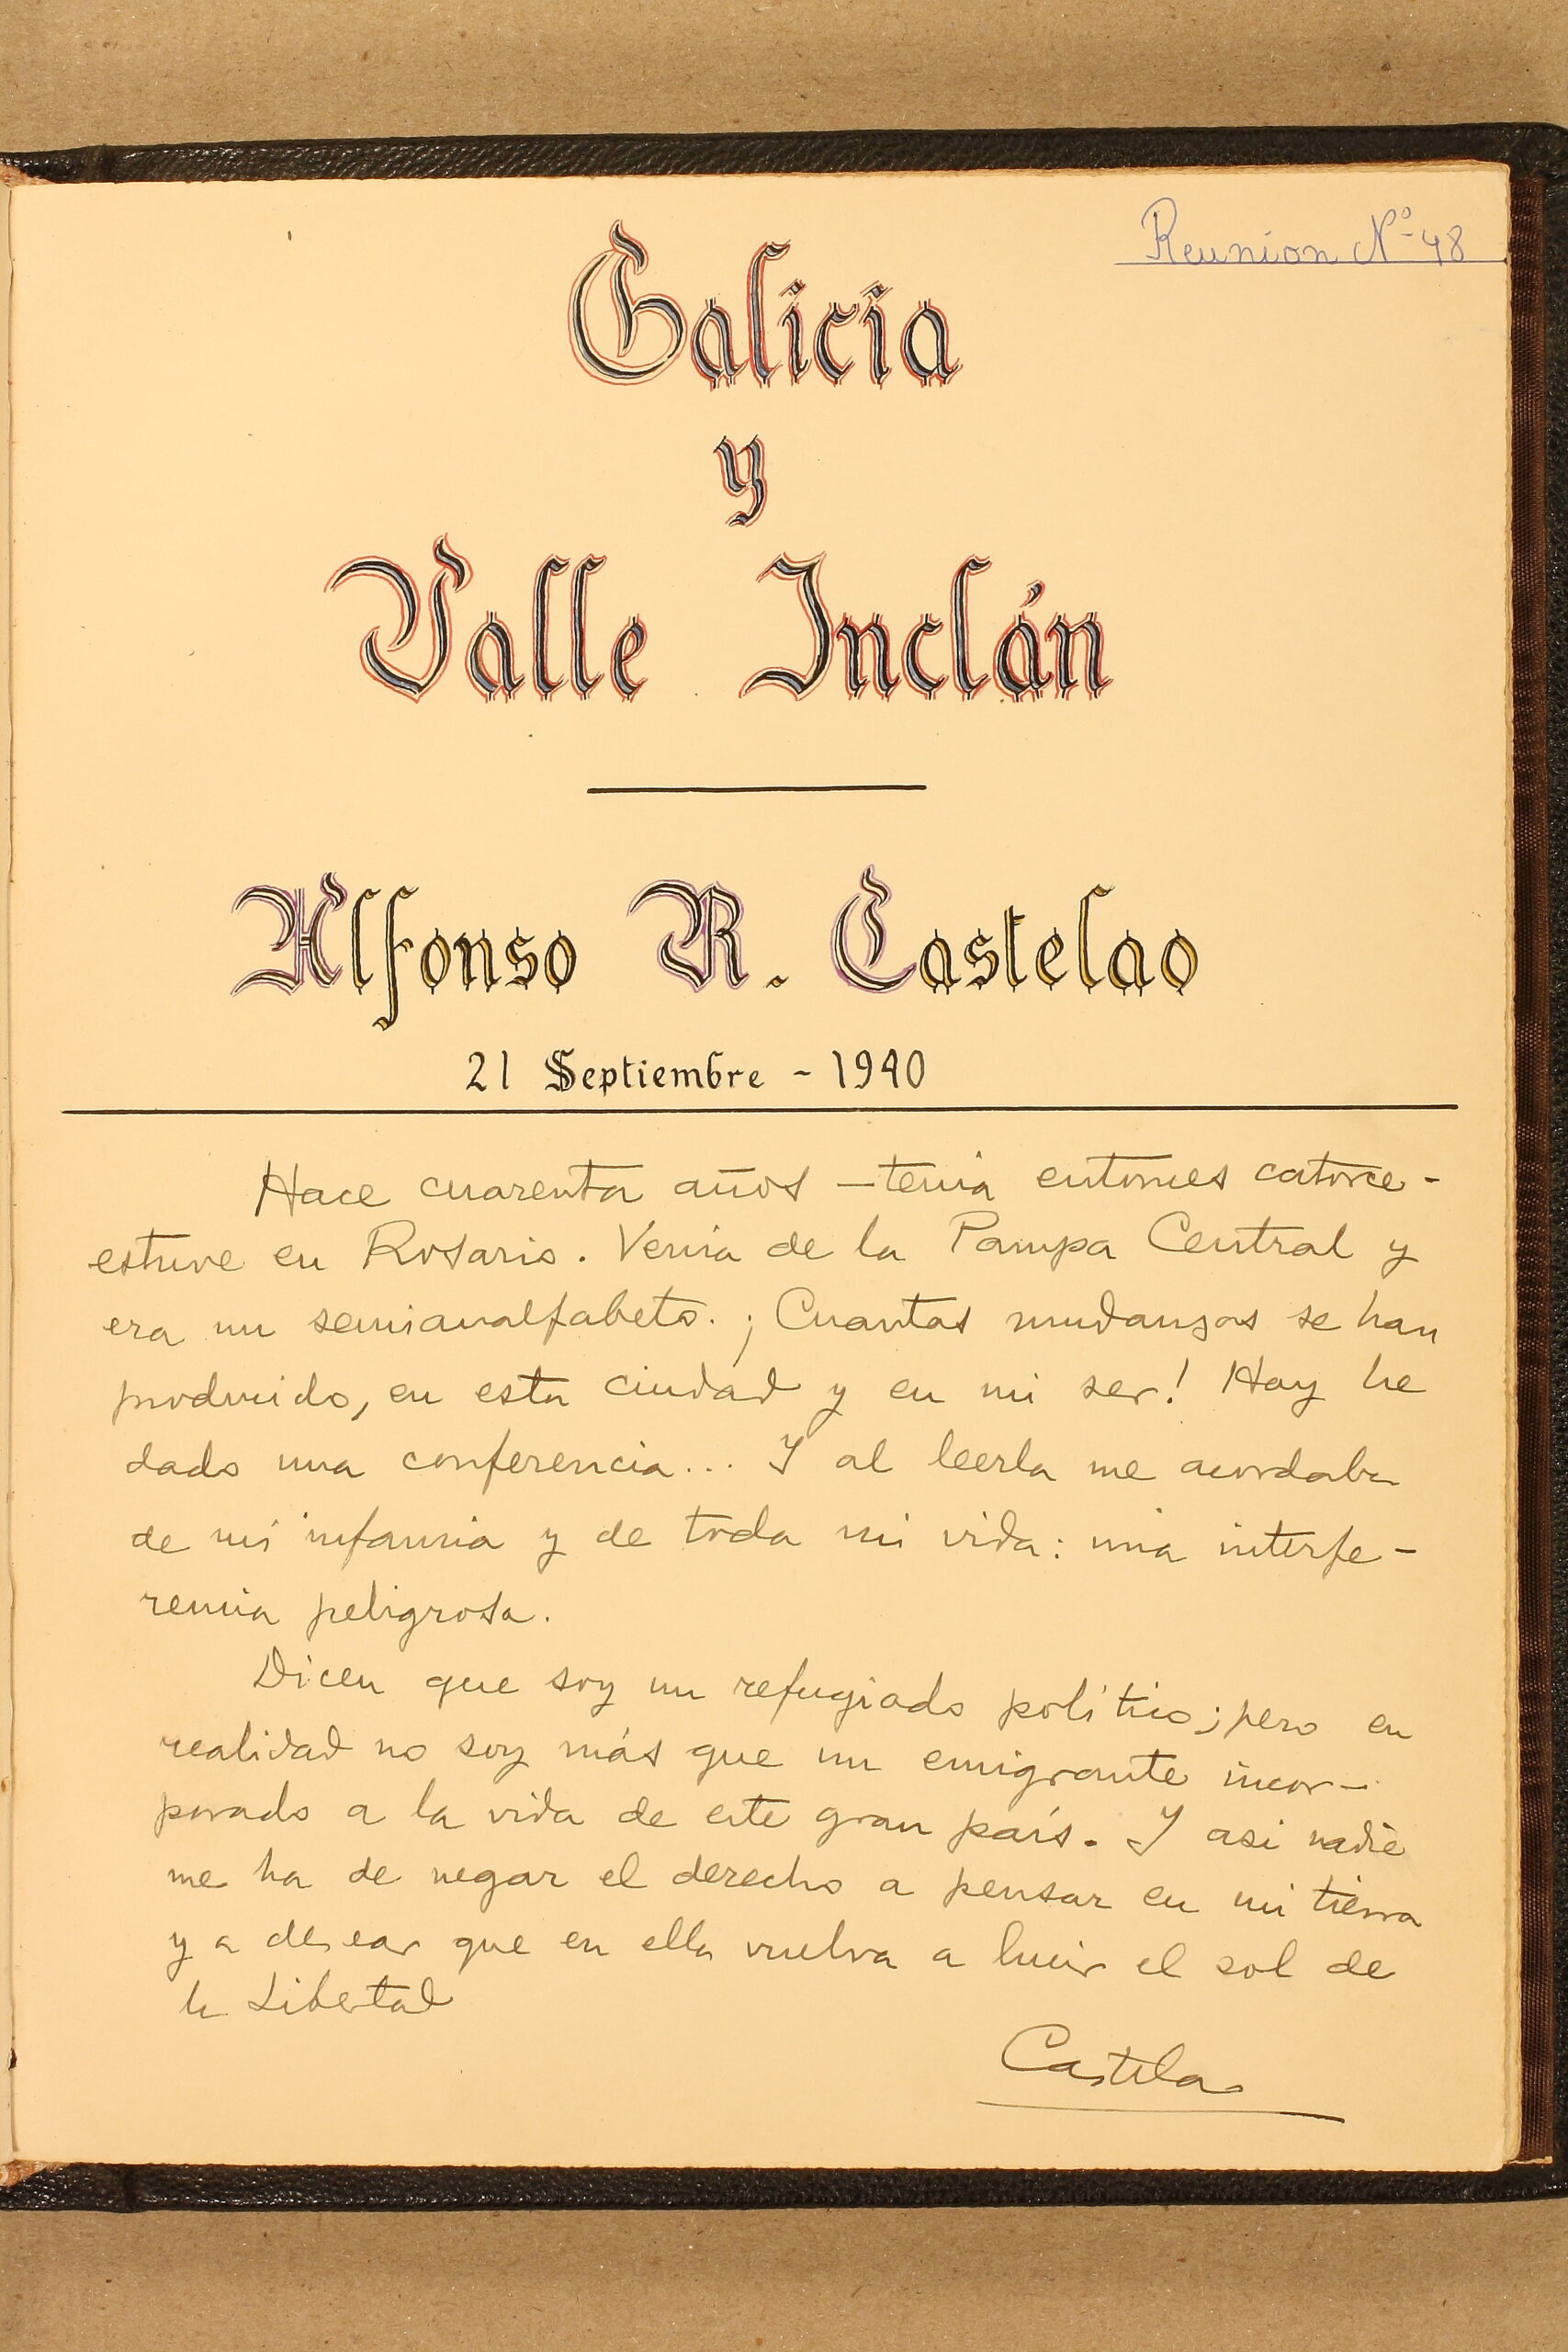 Reunion Nº 48
Galicia
y
Valle Inclán
Alfonso R. Castelao
21 Septiembre - 1940
Hace cuarenta años - tenia entonces catorce -
estuve en Rosario. Venia de la Pampa Central y
era un semianalfabeto. ¡Cuantas mudanzas se han
producido, en esta ciudad y en mi ser! Hoy he
dado una conferencia... Y al leerla me acordaba
de mi infancia y de toda mi vida: una interfe-
rencia peligrosa.
Dicen que soy un refugiado político; pero en
realidad no soy más que un emigrante incor-
porado a la vida de este gran país. Y asi nadie
me ha de negar el derecho a pensar en mi tierra
y a desear que en ella vuelva a lucir el sol de
la Libertad
Castelao